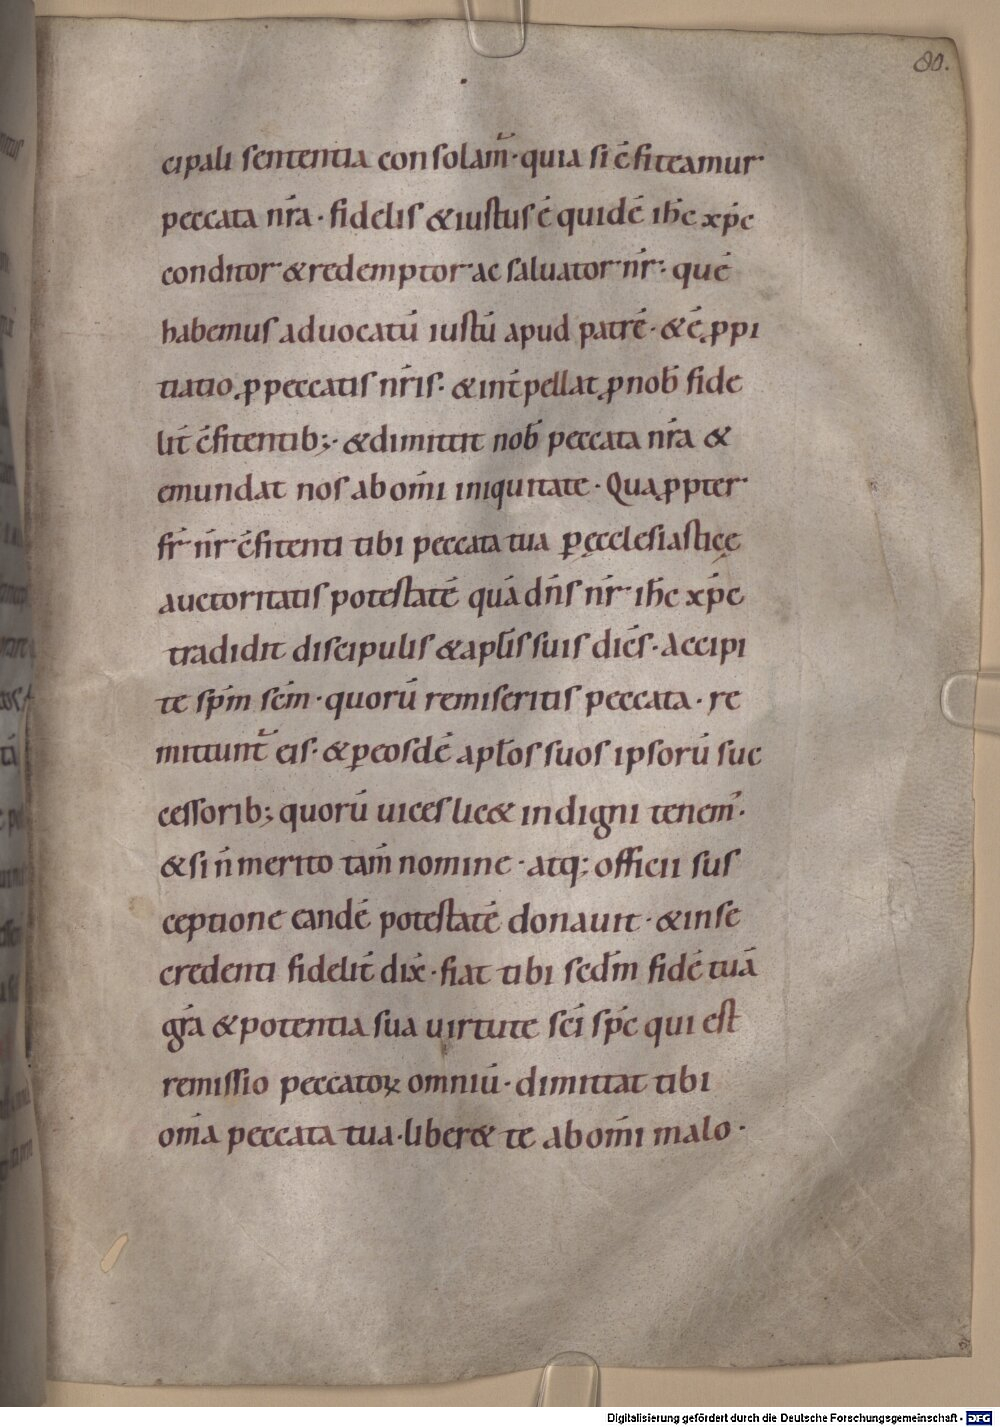 80.
cipali sententia consolam̃· quia si c̄fiteamur
peccata nr̄a · fidelis & iustus ē quidē ih̄c xp̄c
conditor & redemptor ac saluator nr̄ : quē
habemus aduocatū iustū apud patrē · & ē ꝓpi
tiatio ꝓ peccatis nr̄is · & int̄pellat ꝓ nob̄ fide
lit̄ c̄fitentib; · & dimittit nob̄ peccata nr̄a &
emundat nos ab om̄i iniquitate · Quaꝓpter
fr̄ nr̄ c̄fitenti tibi peccata tua ꝑ ęcclesiasticę
auctoritatis potestatē quā dn̄s nr̄ ih̄c xp̄c
tradidit discipulis & apl̄is suis dicēs · Accipi
te sp̄m sc̄m · quorū remiseritis peccata · re
mittunt̃ eis · & ꝑ eosdē apl̄os suos ipsorū suc
cessorib; quorū uices lic& indigni tenem̃ ·
& si n̄ merito tam̄ nomine · atq; officii sus
ceptione eandē potestatē donauit · & in se
credenti fidelit̄ dix̄ · fiat tibi sed̄m fidē tuā
gr̄a & potentia sua uirtute sc̄i sp̄c qui est
remissio peccatoꝝ omniū · dimittat tibi
om̄a peccata tua · liber& te ab om̄i malo ·
Digitalisierung gefördert durch die Deutsche Forschungsgemeinschaft - DFG